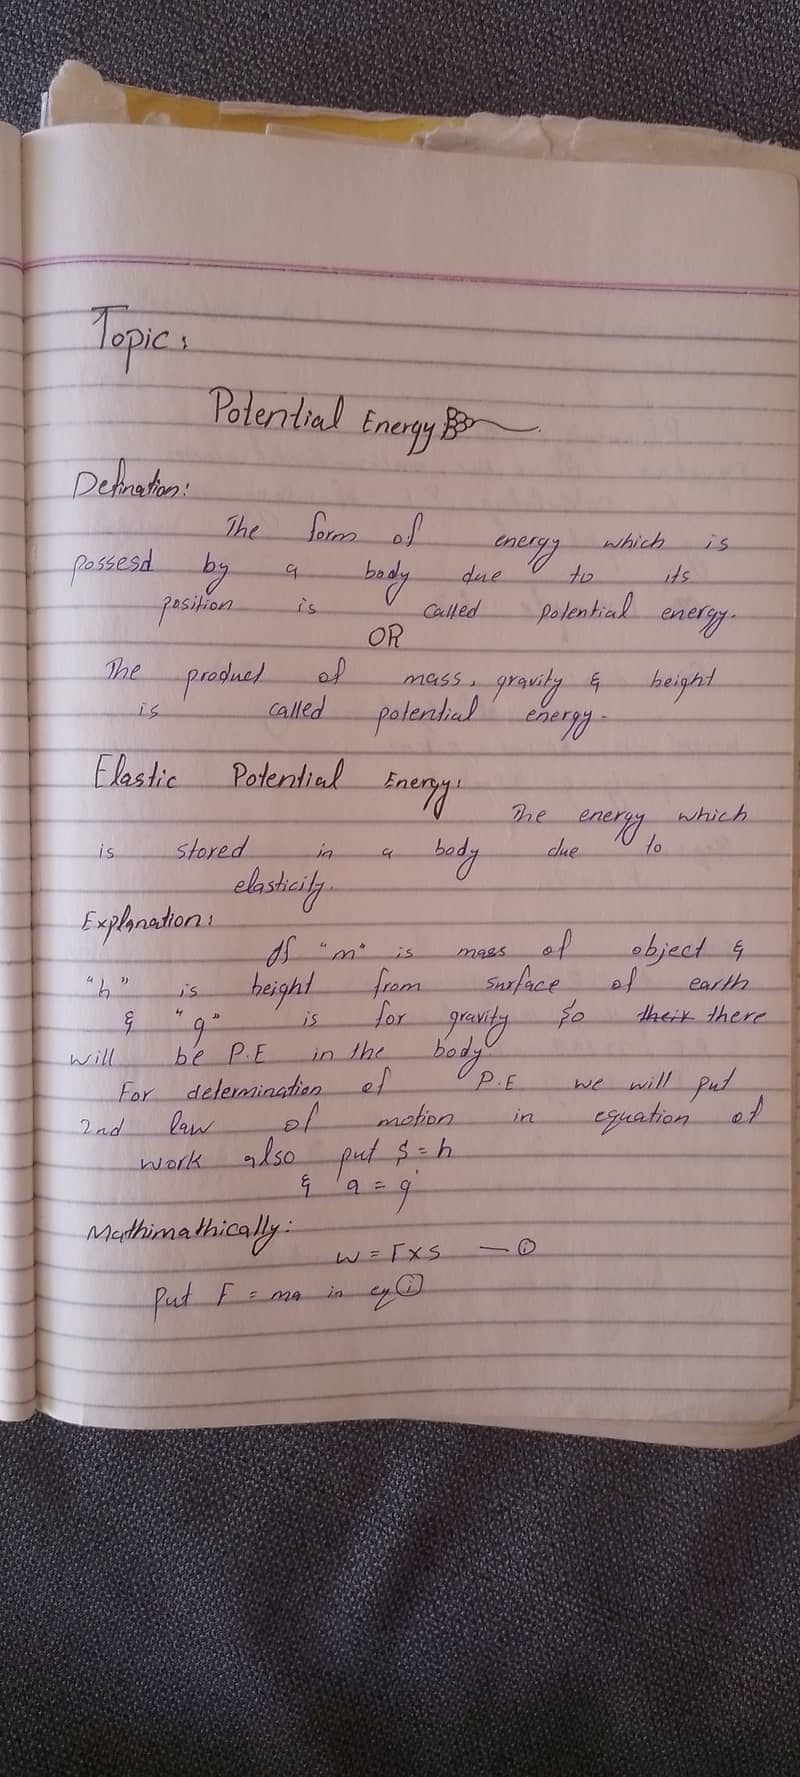 Topic:
Potential Energy
Defination:
The form of energy which is
possesd by a body due to its
position is called potential energy.
OR
The product of mass, gravity & height
is called potential energy.
Elastic Potential Energy:
The energy which
is stored in a body due to
elasticity.
Explanation:
If "m" is mass of object &
"h" is height from surface of earth
& "g" is for gravity so their there
will be P.E in the body.
For determination of P.E we will put
2nd law of motion in equation of
work also put S = h
& a = g
Mathimathically:
W = F x S — (i)
Put F = ma in eq (i)